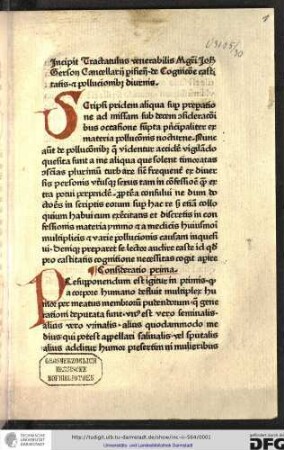 Incipit Tractatulus venerabilis Mgri Joh
Gerson Cancellarij de Cognicõe casti
tatis ⁊ pollucionibꝰ diurnis.
Scripsi pridem aliqua sup preparatio
ne ad missam sub decem cõsideracõi
bus occasione sũpta prĩcipaliter ex
materia pollucionis nocturne. Nunc
aũt de pollucõnibꝰ q̃ videntur accidẽ vigilãdo
quesita sunt a me aliqua que solent timoratas
cõscias plurimũ turbare sũt frequenter ex diuer
sis personis vtriusqꝫ sexus tam in cõfessiõe qꝫ ex
tra
do
quium habui cum exẽrcitatis et discretis in con
fessionis materia ymmo ⁊ a medicis huiusmõi
multiplicis ⁊ varie pollucionis causam inquesi
ui. Deniqꝫ preparet se lector audire caste id qd
pro castitatis cognitione necessitas cogit aperire
Consideratio prima.
Presupponendum est igitur in primis q
a corpore humano defluit multiplex hu
mor per meatus membrorũ pudendorum q̃ gene
rationi deputata sunt vnꝰ est vero seminalis
alius vero vrinalis alius quodammodo me
dius qui potest appellari saliualis vel sputalis
alius additur humor presertim in mulieribus
GROSHERZOGLICH
HESSISCHE
HOFBIBLIOTHEK
TECHNISCHE
UNIVERSITÄT
DARMSTADT
http://tudigit.ulb.tu-darmstadt.de/show/inc-ii-564/0001
Universitäts- und Landesbibliothek Darmstadt
gefördert durch die
DFG